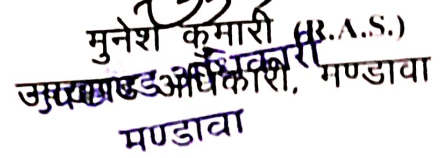 मुनेश कुमारी (R.A.S.)
उपखण्ड अधिकारी, मण्डावा
मण्डावा